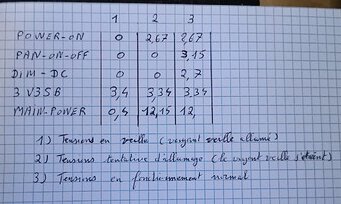 1 2 3
POWER-ON 0 2,67 2,67
PAN-ON-OFF 0 0 3,15
DIM-DC 0 0 2,7
3V3SB 3,4 3,34 3,34
MAIN-POWER 0,4 12,15 12,
1) Tensions en veille (voyant veille allumé)
2) Tensions tentative d'allumage (le voyant veille s'éteint)
3) Tensions en fonctionnement normal